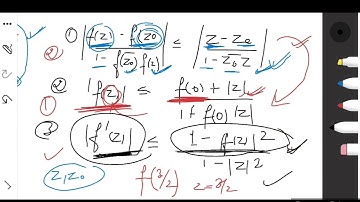 ② | f(z) - f(z0) / 1 - f(z0) f(z) | ≤ | z - z0 / 1 - z̄0 z |
② ① |f(z)| ≤ f(0) + |z| / 1 + f(0) |z|
③ |f'(z)| ≤ 1 - |f(z)|² / 1 - |z|²
z, z0 f(3/2) z = 3/2